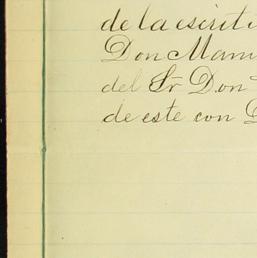 de la escrit
Don Man
del Sr Don
de este con